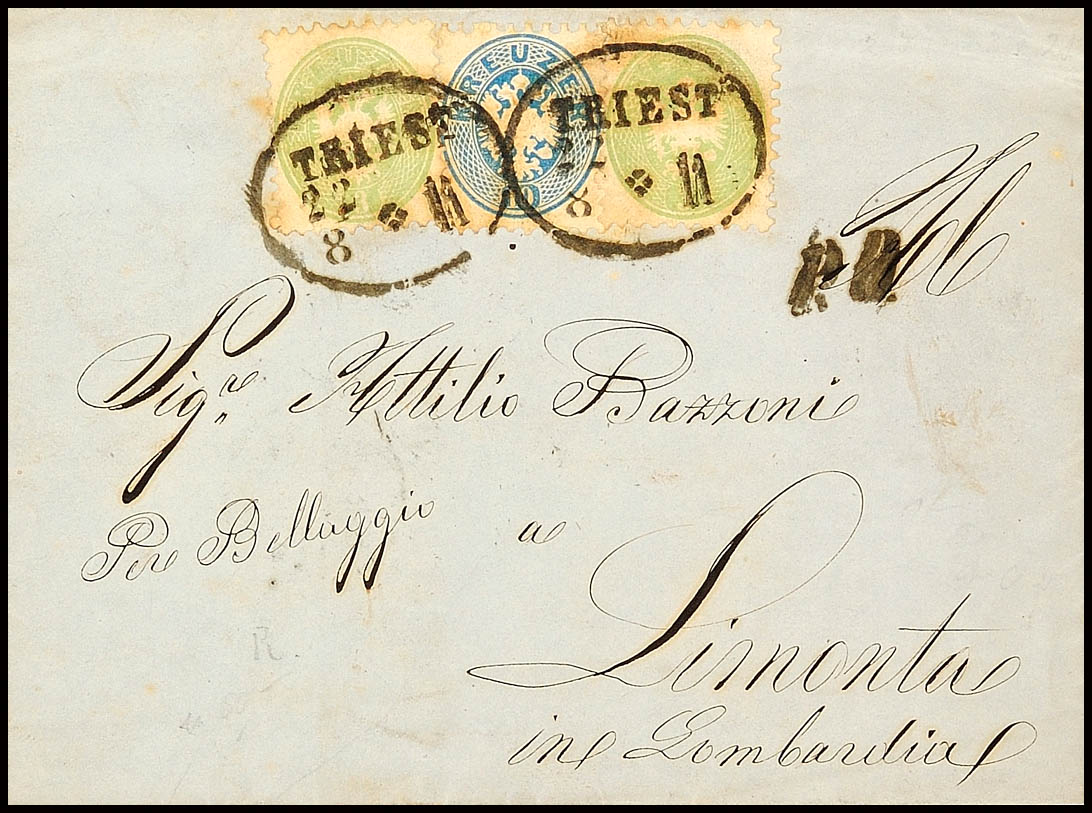 KREUZER
10
TRIEST
22
8
11
TRIEST
22
8
11
P.D.
Al
Sigre Attilio Bazzoni
Per Bellaggio a
Limonta
in Lombardia
R.